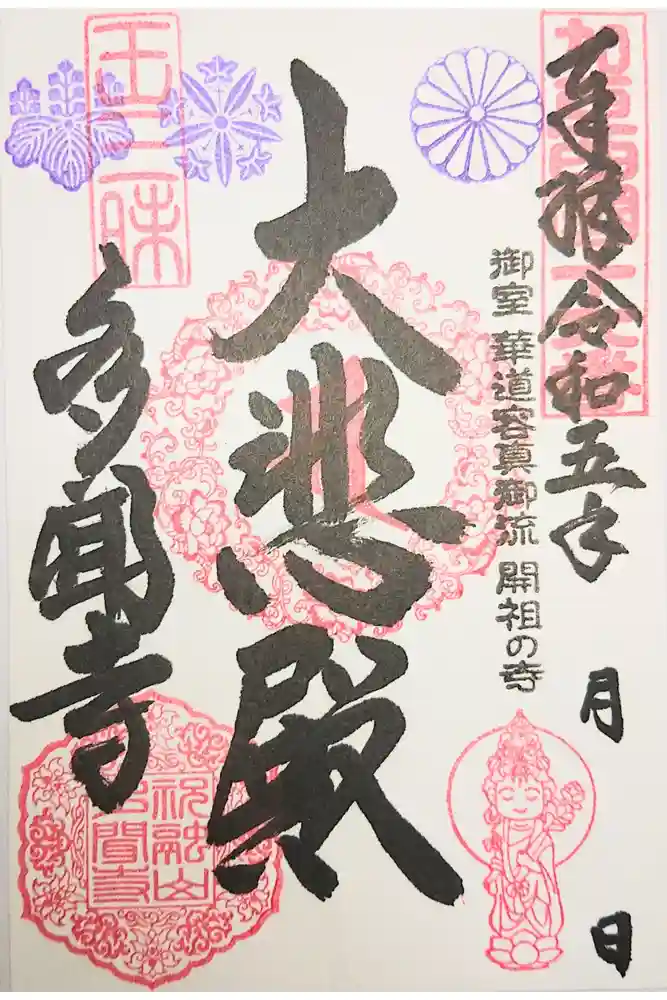 奉拝 令和五年 月 日
御室 華道容真御流 開祖の寺
大悲殿
多聞寺
祝融山多聞寺